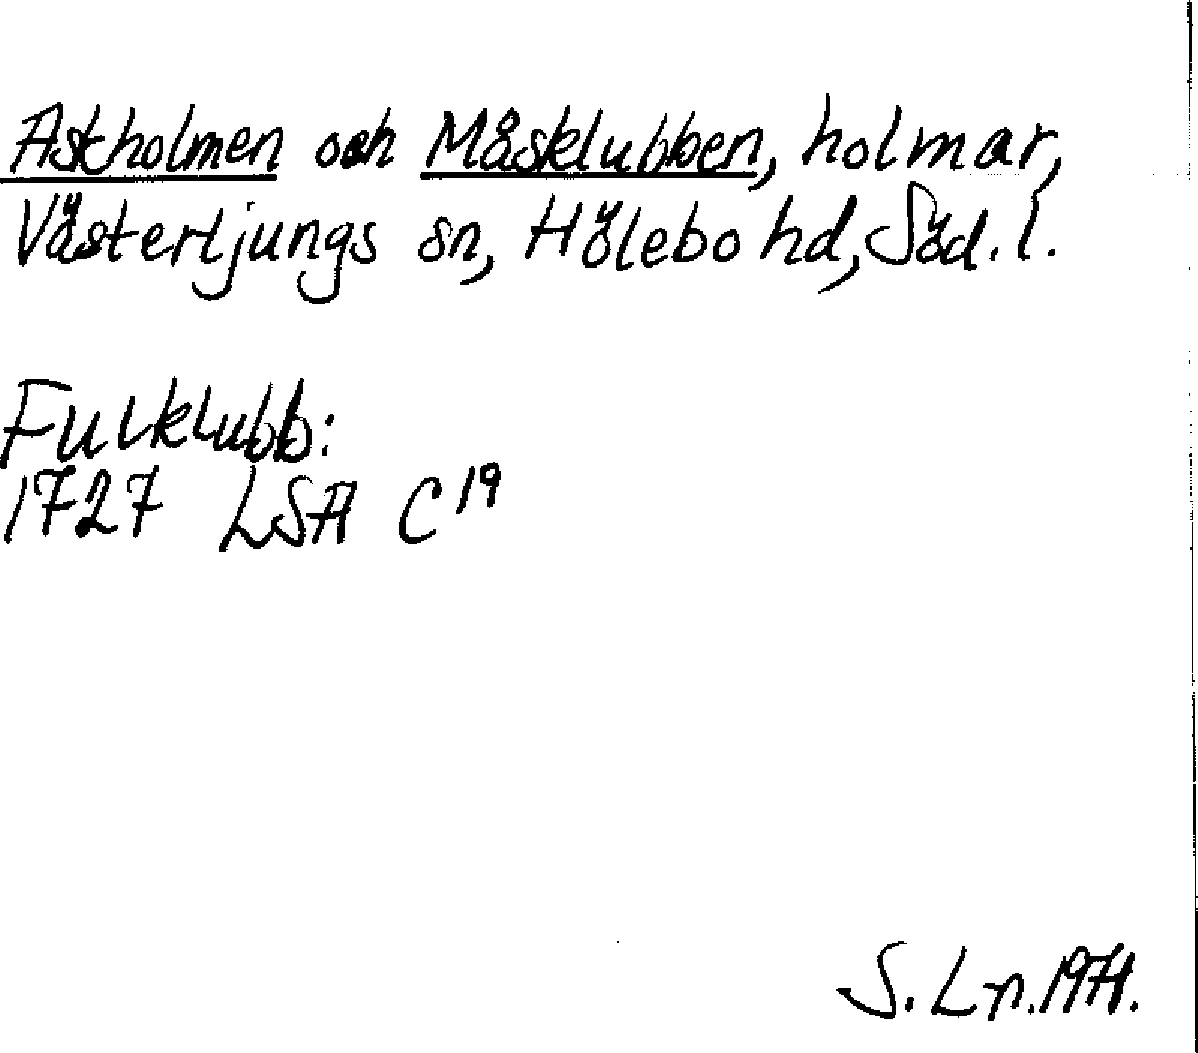 Askholmen och Måsklubben, holmar,
Västerljungs sn, Hölebo hd, Söd. l.
Fulklubb:
1727 LSA C 19
S. Ln. 1971.